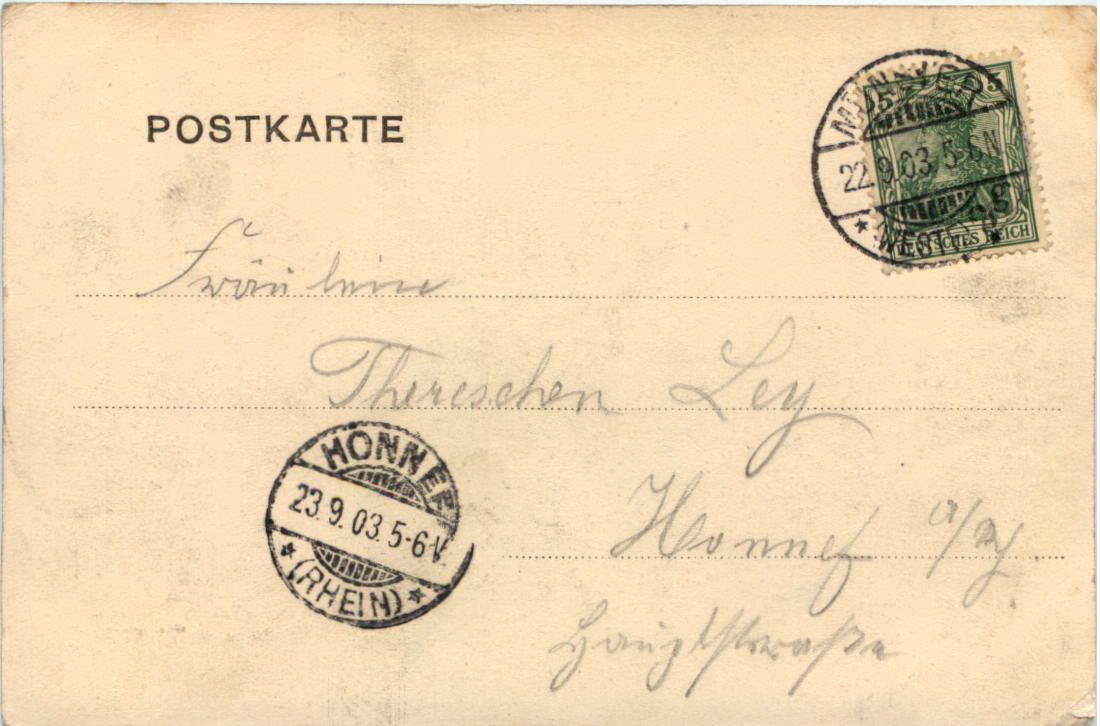 POSTKARTE
MÜNSTER
22.9.03. 5-6N
* (WESTF.) *
5 5
DEUTSCHES REICH
Fräulein
Thereschen Ley
HONNEF
23.9.03. 5-6V.
* (RHEIN) *
Honnef a/Rh.
Hauptstraße